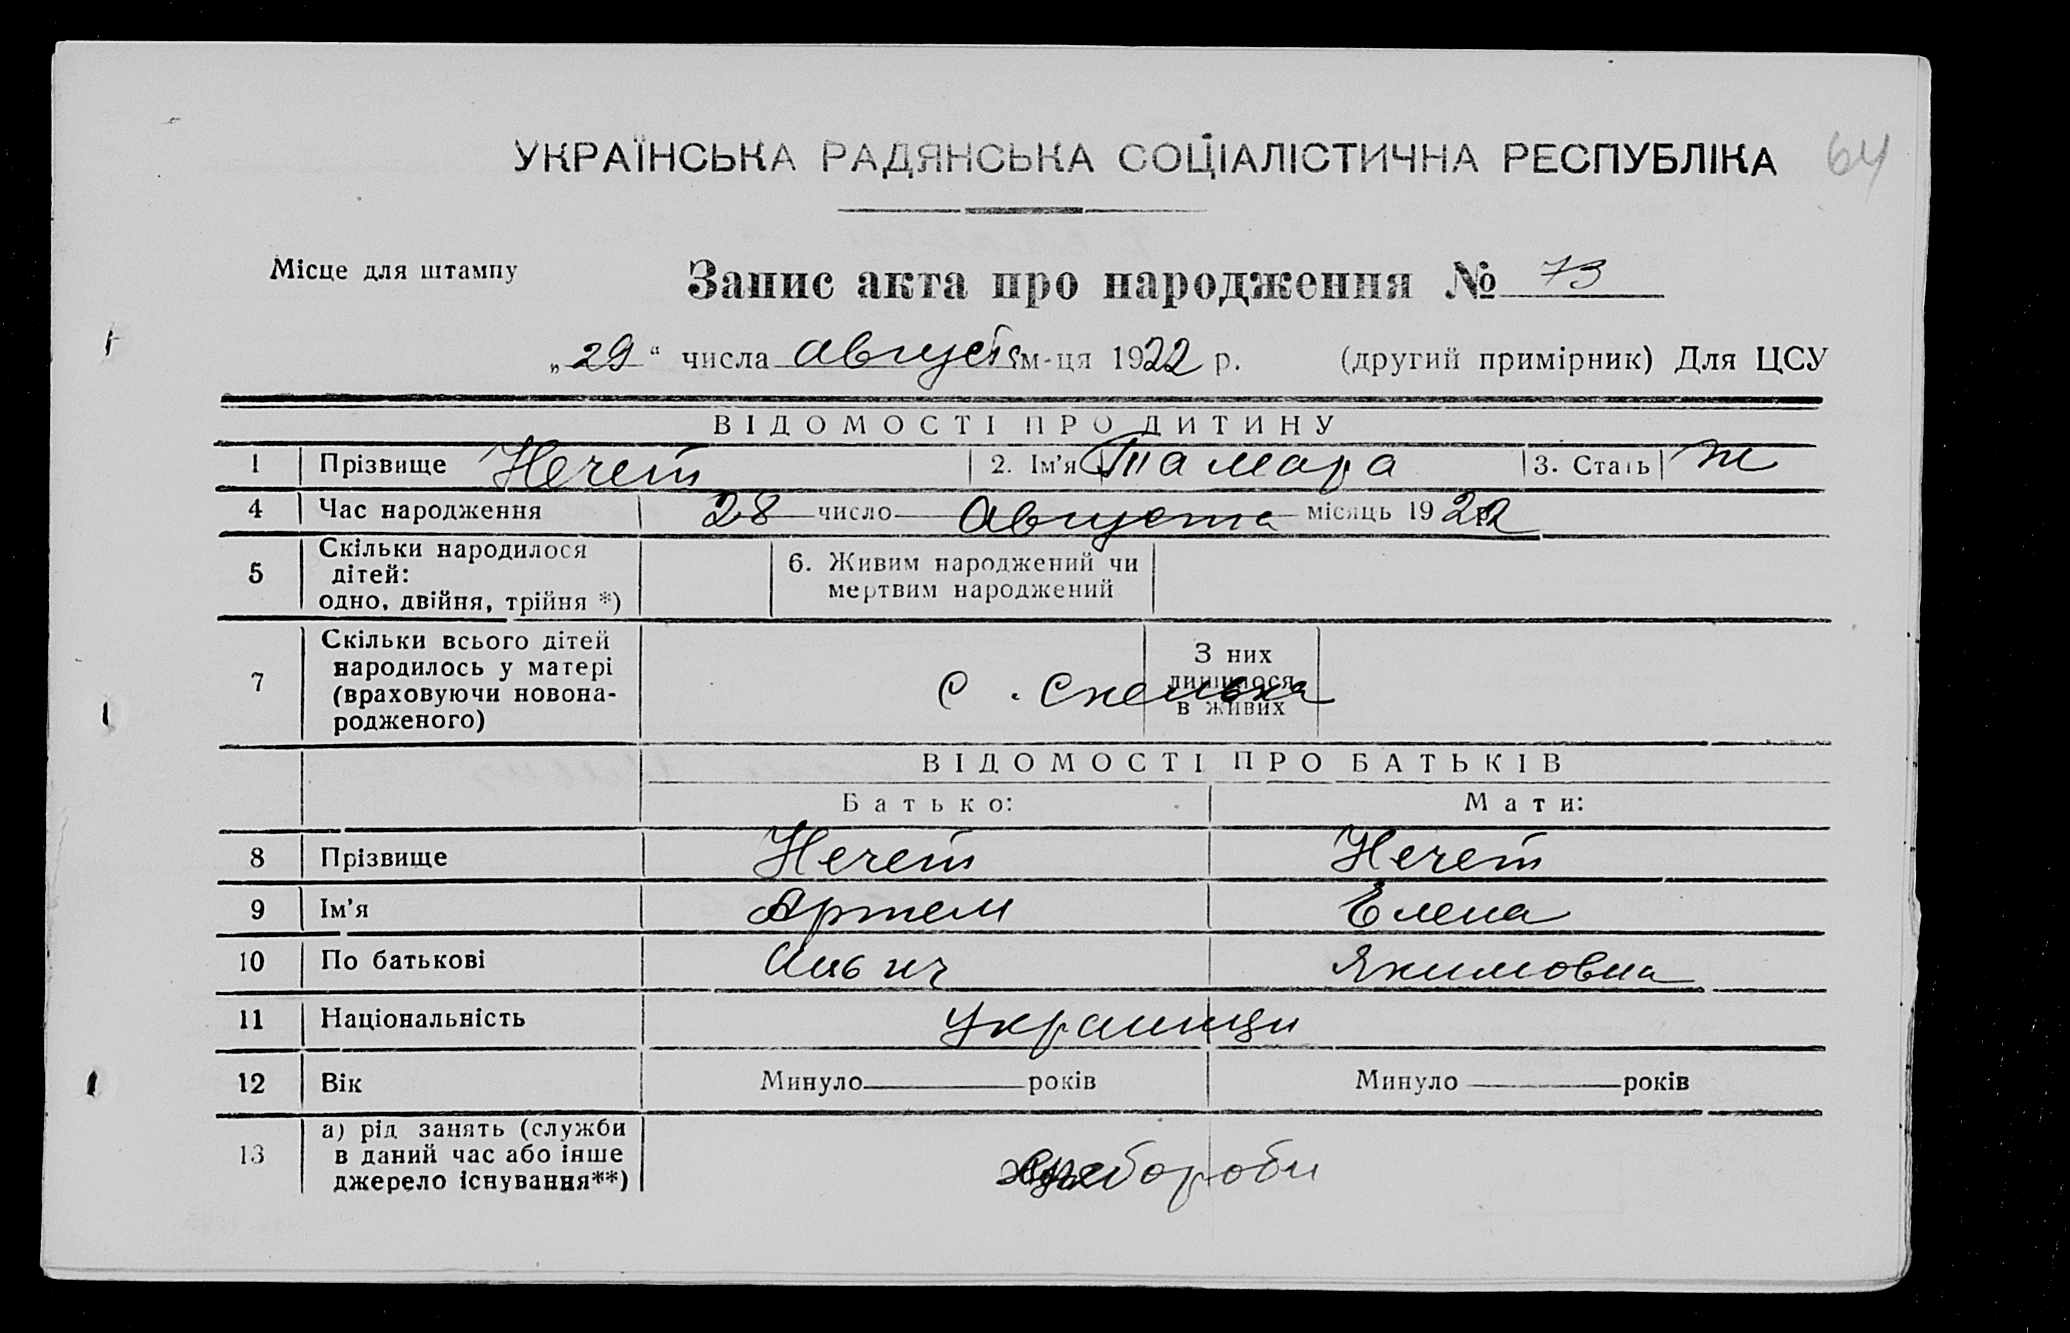 64
УКРАЇНСЬКА РАДЯНСЬКА СОЦІАЛІСТИЧНА РЕСПУБЛІКА
Місце для штампу
Запис акта про народження № 73
„29“ числа августа м-ця 1922 р. (другий примірник) Для ЦСУ
ВІДОМОСТІ ПРО ДИТИНУ
1 Прізвище Нечет 2. Ім'я Тамара 3. Стать ж
4 Час народження 28 число Августа місяць 1922 р.
5 Скільки народилося дітей: одно, двійня, трійня *) 6. Живим народжений чи мертвим народжений
7 Скільки всього дітей народилось у матері (враховуючи новонародженого) З них лишилося в живих
с. Скелька
ВІДОМОСТІ ПРО БАТЬКІВ
Батько: Мати:
8 Прізвище Нечет Нечет
9 Ім'я Артем Елена
10 По батькові Ильич Якимовна
11 Національність Украинци
12 Вік Минуло років Минуло років
13 а) рід занять (служби в даний час або інше джерело існування**)